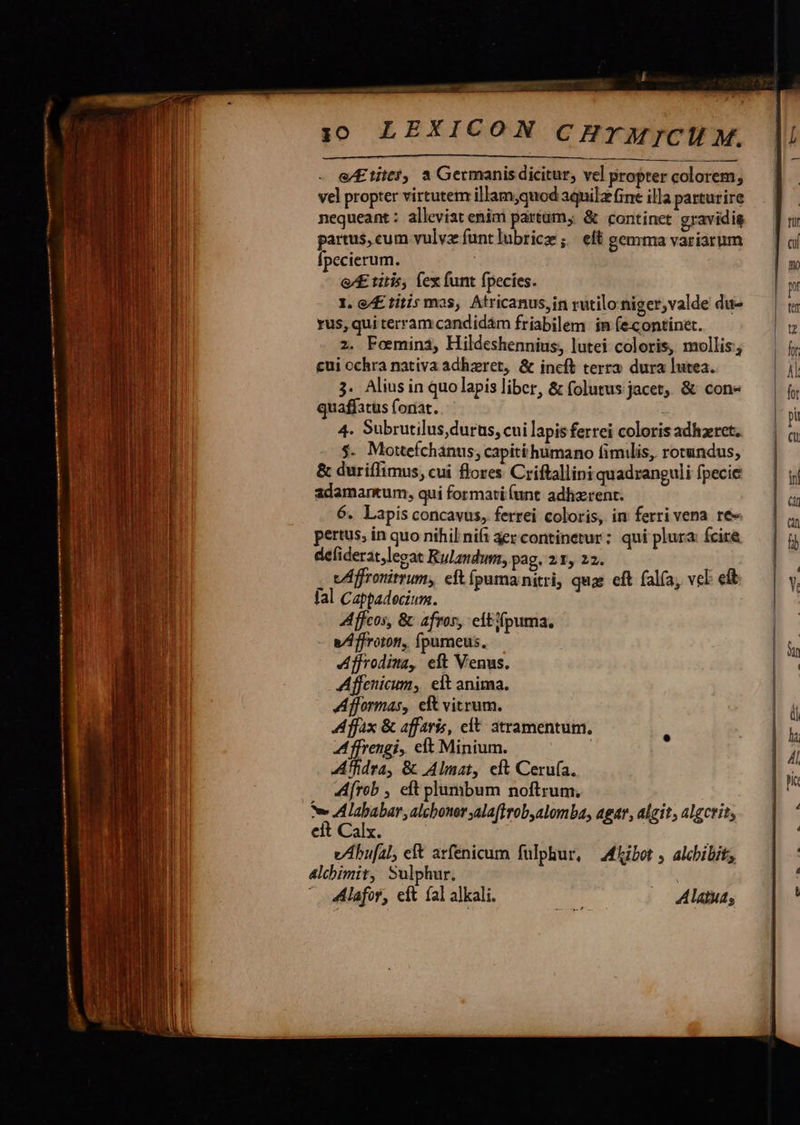 10 LEXICON CHYMICUM.
Ætites, a Germanis dicitur, vel propter colorem,
vel propter virtutem illam, quod aquilæ sine illa parturire
nequeant: alleviat enim partum, & continet gravidis
partus, cum vulvæ sunt lubricæ; est gemma variarum
specierum.
Ætitis, sex sunt species.
1. Ætitis mas, Africanus, in rutilo niger, valde du-
rus, qui terram candidam friabilem in se continet.
2. Fœmina, Hildeshennius, lutei coloris, mollis,
cui ochra nativa adhæret, & inest terra dura lutea.
3. Alius in quo lapis liber, & solutus jacet, & con-
quassatus sonat.
4. Subrutilus, durus, cui lapis ferrei coloris adhæret.
5. Motteschanus, capiti humano similis, rotundus,
& durissimus, cui flores Cristallini quadranguli specie
adamantum, qui formati sunt adhærent.
6. Lapis concavus, ferrei coloris, in ferri vena re-
pertus, in quo nihil nisi aer continetur: qui plura scire
desiderat, legat Rulandum, pag. 21, 22.
Affronitrum, est spuma nitri, quæ est salsa, vel est
sal Cappadocium.
Affcos, & afros, est spuma.
Affroton, spumeus.
Affrodina, est Venus.
Affenicum, est anima.
Afformas, est vitrum.
Affax & affaris, est atramentum.
Affrengi, est Minium.
Affidra, & Almat, est Cerusa.
Afrob, est plumbum nostrum.
Alababar, alchonor, alastrob, alomba, agar, algit, algerit,
est Calx.
Abusal, est arsenicum sulphur, Akibot, alchibit,
alchimit, Sulphur.
Alafor, est sal alkali.
Alatua,